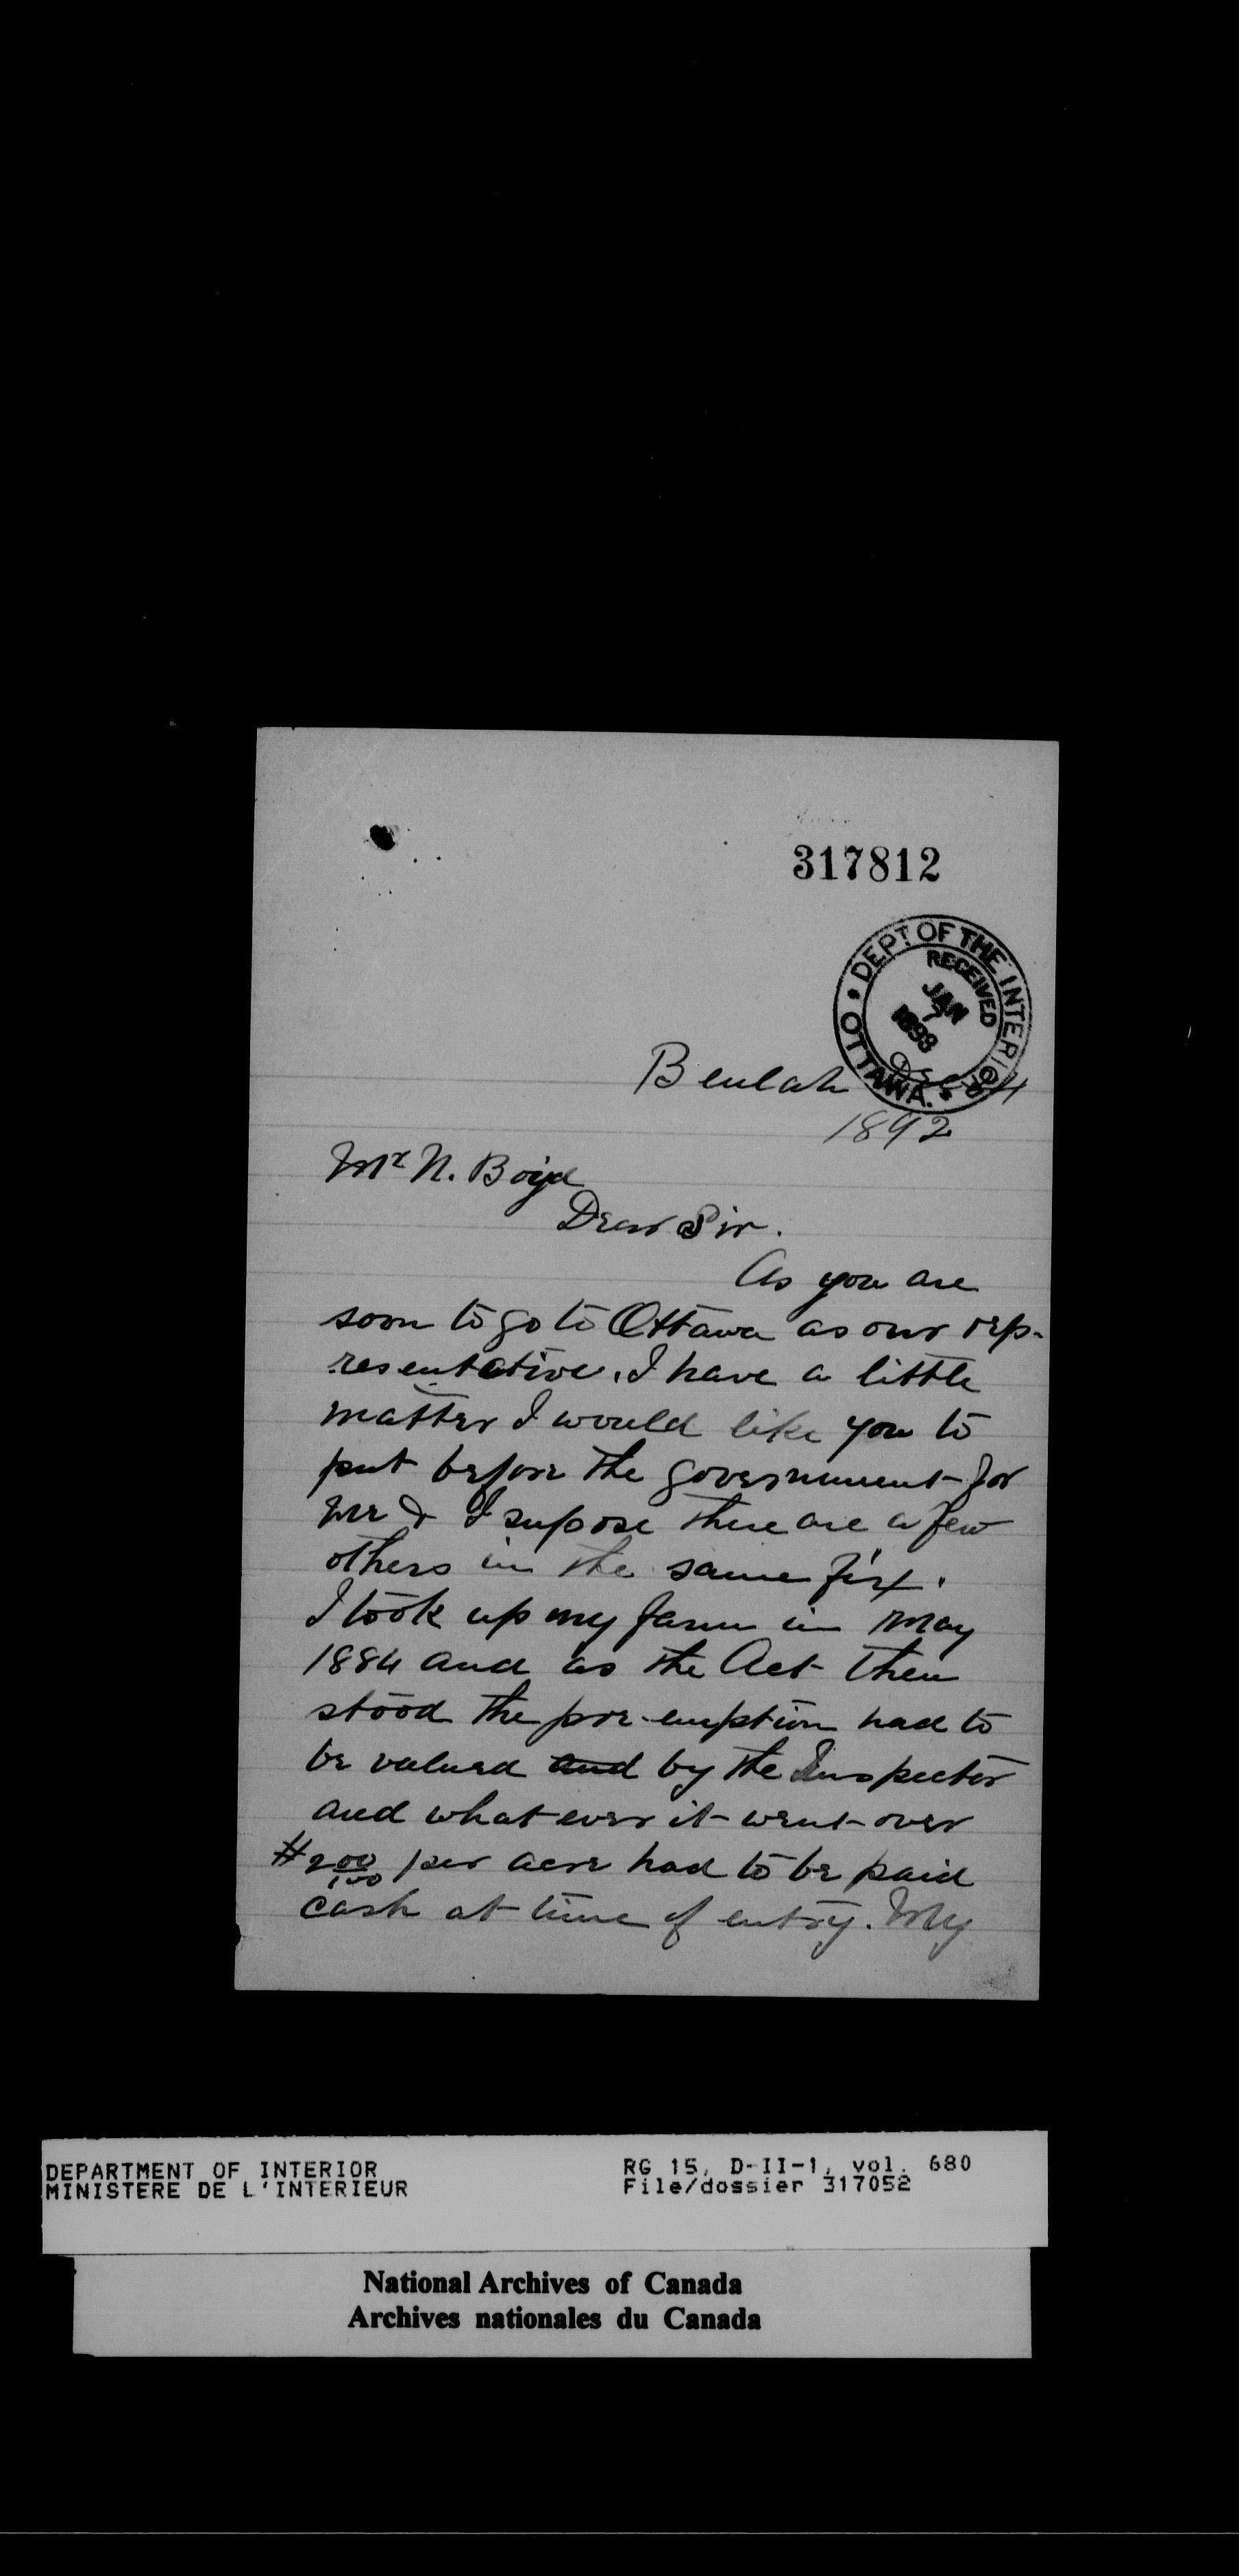 317812
DEPT OF THE INTERIOR
RECEIVED
JAN
7
1893
OTTAWA.
Beulah Dec
1892
Mr N. Boyd
Dear Sir.
As you are
soon to go to Ottawa as our rep-
resentative. I have a little
matter I would like you to
put before the government for
me & I supose there are a few
others in the same fix.
I took up my farm in May
1884 and as the Act then
stood the pre-emption had to
be valued and by the Inspector
and what ever it went over
$2 00/100 per acre had to be paid
cash at time of entry. My
DEPARTMENT OF INTERIOR
MINISTERE DE L'INTERIEUR
RG 15, D-II-1, vol. 680
File/dossier 317052
National Archives of Canada
Archives nationales du Canada